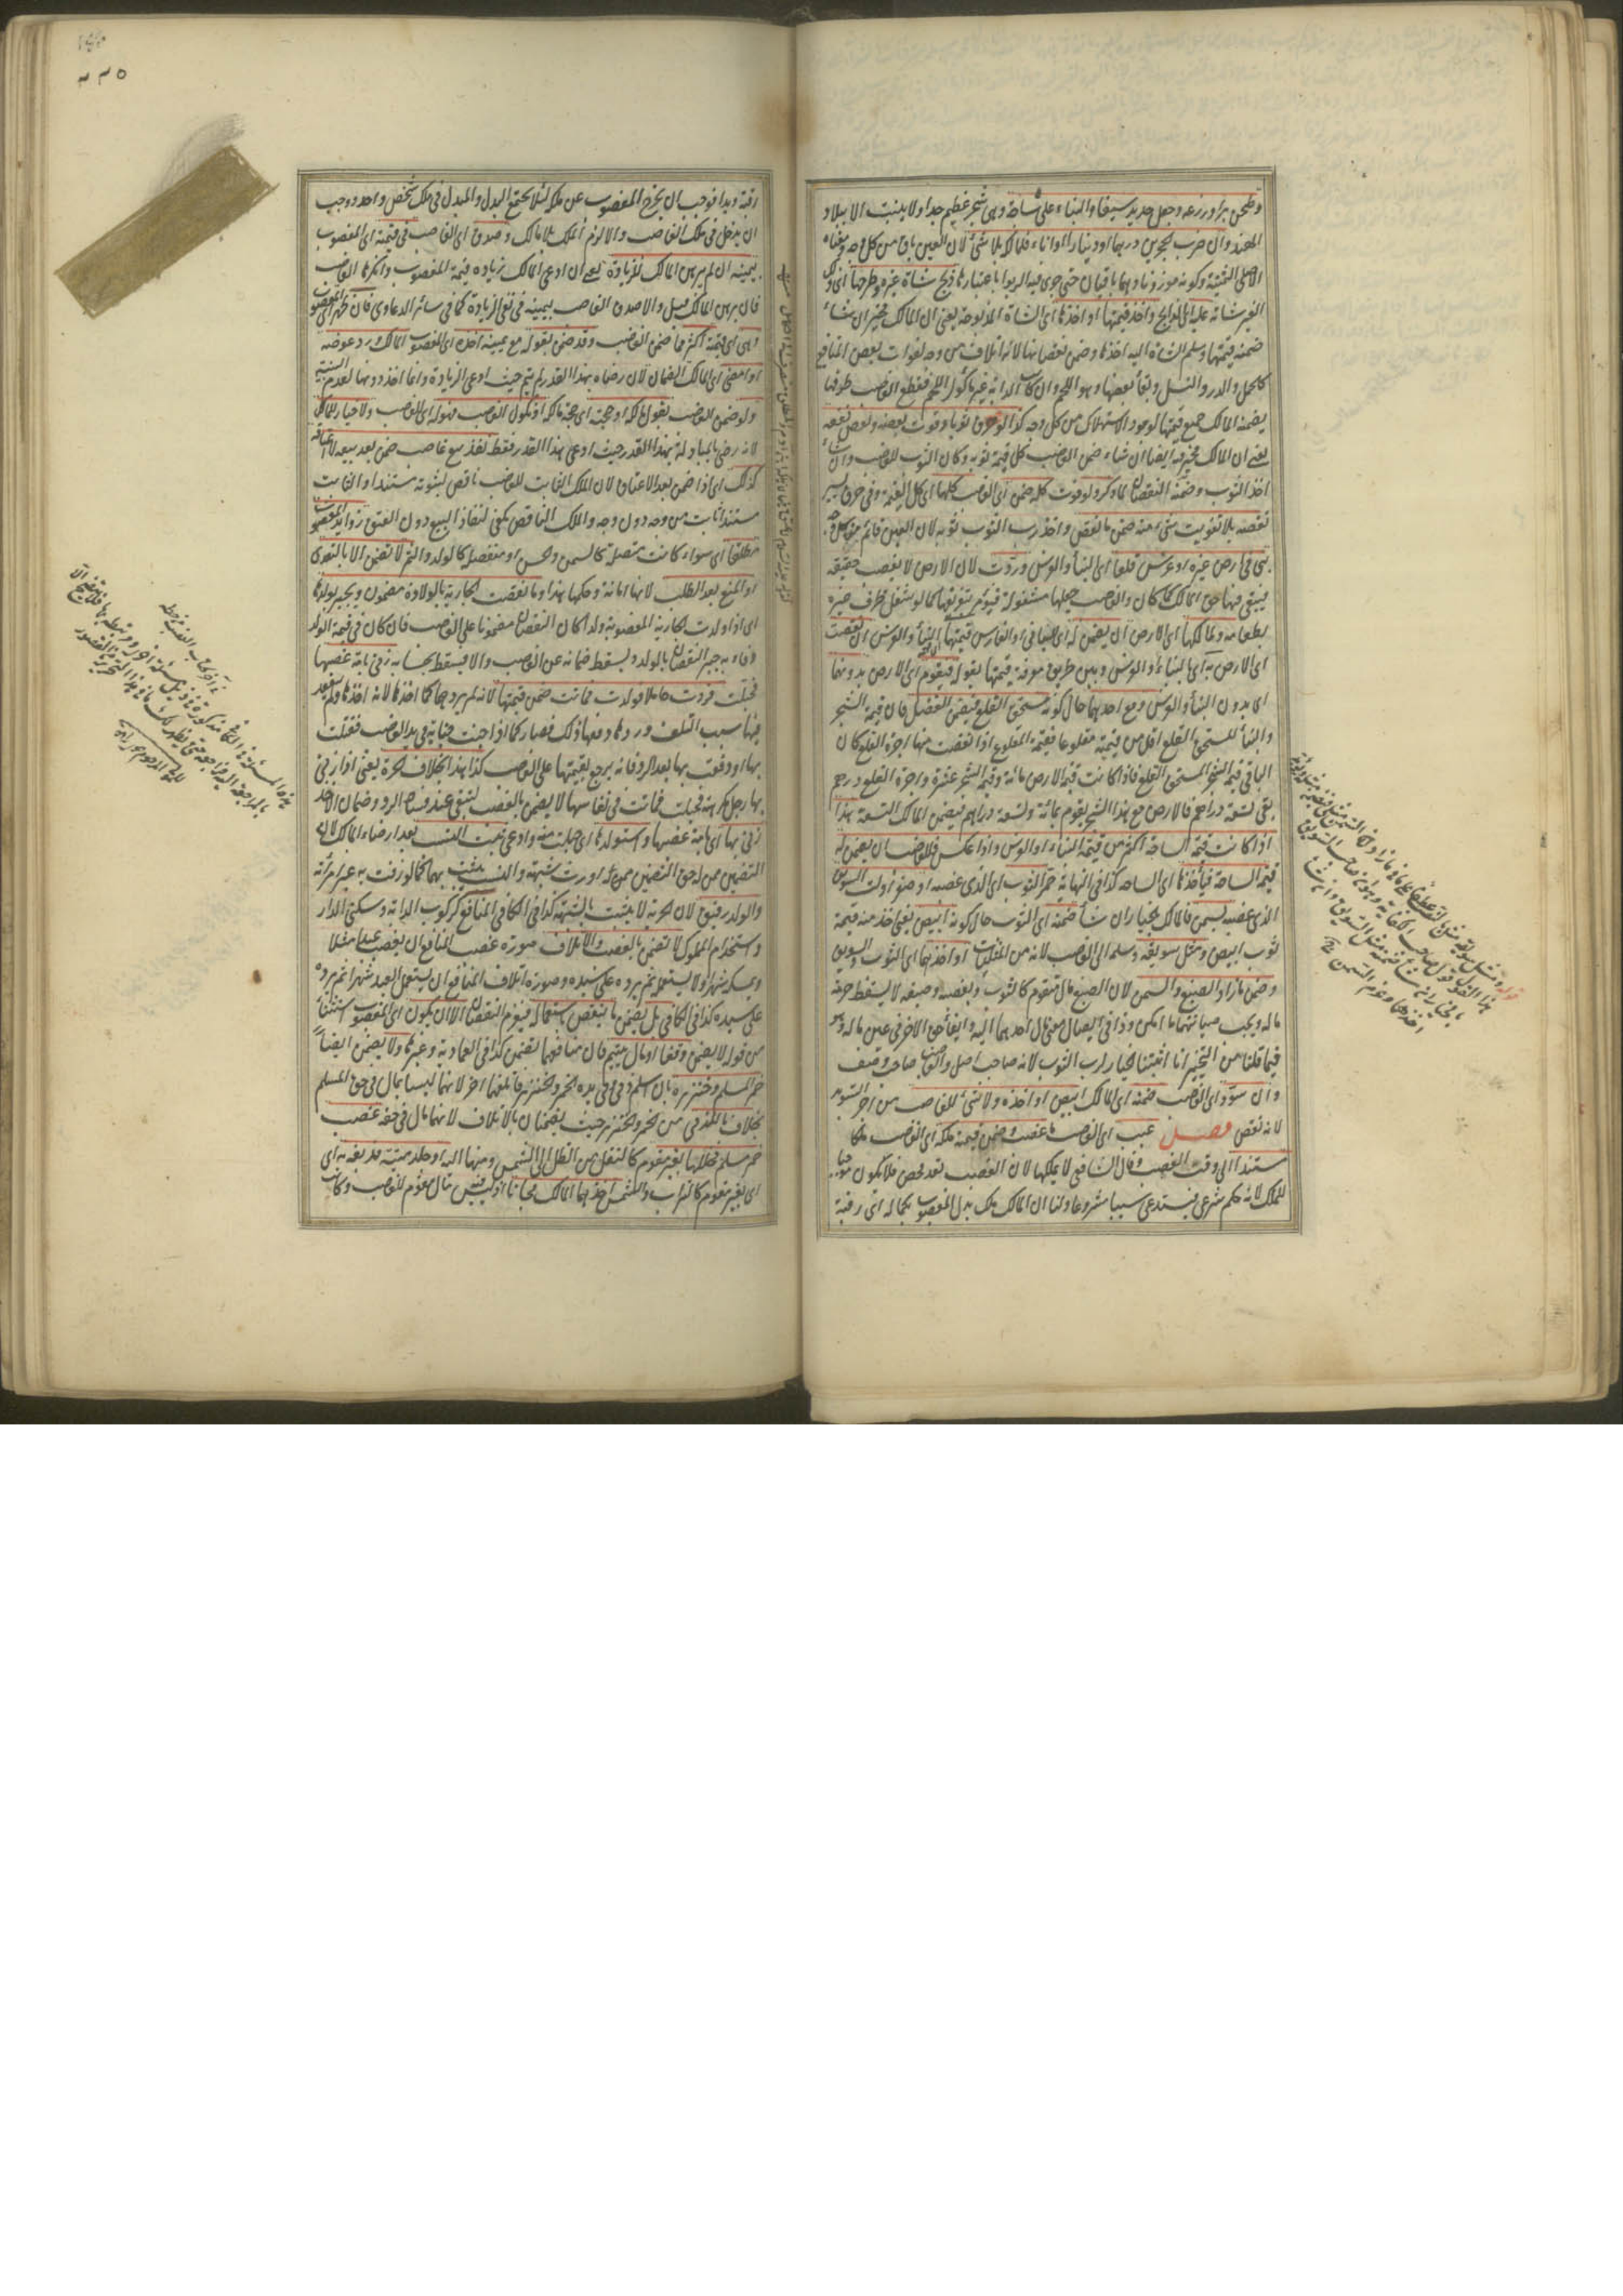 وطحن بر وزرعه وجعل حديد سيفا والبناء على ساجة وهي شجر عظيم جدا ولا ينبت الا ببلاد
الهند وان ضرب الحجرين درهما او دينارا او اناء فلمالكه بلا شئ لان العين باق من كل وجه ومعناه
الاصلي الثمنية وكونه موزونا وهما باقيان حتى جرى فيه الربوا باعتبارها ذبح شاة غيره وطرحها اى
الغير شاته عليه اى الذابح واخذ قيمتها او اخذها اى الشاة المذبوحة يعنى ان المالك مخير ان شاء
ضمنه قيمتها وسلم الشاة اليه اخذها وضمن نقصانها لانه اتلاف من وجه لفوات بعض المنافع
كالحمل والدر والنسل وبقاء بعضها وهو اللحم وان كانت الدابة غير مأكول اللحم فقطع الغاصب طرفها
يضمنه المالك جميع قيمتها لوجود الاستهلاك من كل وجه كذا لو خرق ثوبا وفوت بعضه وبعض نفعه
يعنى ان المالك مخير فيه ايضا ان شاء ضمن الغاصب كل قيمة ثوبه وكان الثوب للغاصب وان شاء
اخذ الثوب وضمنه النقصان لما ذكر ولو فوت كله ضمن اى الغاصب كلها اى كل القيمة وفي خرق يسير
نقصه بلا تفويت شئ منه ضمن ما نقص واخذ رب الثوب ثوبه لان العين قائم من كل وجه
بنى في ارض غيره او غرس قلعا اى البناء والغرس وردت لان الارض لا يغصب حقيقة
فيبقى فيها حق المالك كما كان والغاصب جعلها مشغولة فيؤمر بتفريغها كما لو شغل ظرف غيره
بطعامه ولمالكها اى الارض ان يضمن له اى للبانى او الغارس قيمتها اى البناء والغرس ان نقصت
اى الارض به اى بالبناء او الغرس وبين طريق معرفة قيمتها بقوله فيقوم اى الارض بدونهما
اى بدون البناء والغرس ومع احدهما حال كونه مستحق القلع فيضمن الفضل فان قيمة الشجر
والبناء المستحق القلع اقل من قيمته مقلوعا فقيمة المقلوع اذا نقصت منها اجرة القلع كان
الباقي قيمة الشجر المستحق القلع فاذا كانت قيمة الارض مائة وقيمة الشجر عشرة واجرة القلع درهم
بقى تسعة دراهم فالارض مع هذا الشجر يقوم بمائة وتسعة دراهم فيضمن المالك التسعة هذا
اذا كانت قيمة الساحة اكثر من قيمة البناء او الغرس واذا عكس فللغاصب ان يضمن له
قيمة الساحة فيأخذها اى الساحة كذا في النهاية حمر الثوب اى الذى غصبه او صفر او لت السويق
الذى غصبه بسمن فالمالك بالخيار ان شاء ضمنه اى الثوب حال كونه ابيض يعنى اخذ منه قيمة
ثوب ابيض ومثل سويقه وسلمه الى الغاصب لانه من المثليات او اخذهما اى الثوب والسويق
وضمن ما زاد الصبغ والسمن لان الصبغ مال متقوم كالثوب وبغصبه وصبغه لا يسقط حرمة
ماله ويجب صيانتهما ما امكن وذا في ايصال معنى مال احدهما اليه وابقاء حق الاخر في عين ماله وهو
فيما قلنا من التخيير انا اثبتنا الخيار لرب الثوب لانه صاحب اصل والغاصب صاحب وصف
وان سود اى الغاصب ضمنه اى المالك ابيض او اخذه ولا شئ للغاصب من اجر التسويد
لانه نقص فصل غيب اى الغاصب ما غصب وضمن قيمته ملكه اى الغاصب ملكا
مستندا الى وقت الغصب وقال الشافعي لا يملكها لان الغصب تعد محض فلا يكون موجبا
للملك لانه حكم شرعى فيستدعى سببا مشروعا ولنا ان المالك ملك بدل المغصوب بكماله اى رقبة
٢٢٥
رقبة ويدا فوجب ان يخرج المغصوب عن ملكه لئلا يجتمع البدل والمبدل في ملك شخص واحد ووجب
ان يدخل في ملك الغاصب والا لزم الملك بلا مالك وصدق اى الغاصب في قيمته اى المغصوب
بيمينه ان لم يبرهن المالك للزيادة يعنى ان ادعى المالك زيادة قيمة المغصوب وانكرها الغاصب
فان برهن المالك قبل والا صدق الغاصب بيمينه في نفى الزيادة كما في سائر الدعاوى فان ظهر اى المغصوب
وهى اى قيمته اكثر مما ضمن الغاصب وقد ضمن بقوله مع يمينه اخذه اى المغصوب المالك ورد عوضه
او امضى اى المالك الضمان لان رضاه بهذا القدر لم يتم حيث ادعى الزيادة وانما اخذ دونها لعدم البينة
ولو ضمن الغاصب بقول مالكه او حجته اى حجة مالكه او نكول الغاصب فهو له اى للغاصب ولا خيار للمالك
لانه رضى بالمبادلة بهذا القدر حيث ادعى هذا القدر فقط نفذ بيع غاصب ضمن بعد بيعه لا اعتاقه
كذلك اى اذا ضمن بعد الاعتاق لان الملك الثابت للغاصب ناقص لثبوته مستندا والثابت
مستندا ثابت من وجه دون وجه والملك الناقص يكفى لنفاذ البيع دون العتق زوايد المغصوب
مطلقا اى سواء كانت متصلة كالسمن والحسن او منفصلة كالولد والثمر لا تضمن الا بالتعدى
او المنع بعد الطلب لانها امانة وحكمها هذا وما نقصت الجارية بالولادة مضمون ويجبر بولدها
اى اذا ولدت الجارية المغصوبة ولدا كان النقصان مضمونا على الغاصب فان كان في قيمة الولد
وفاء به جبر النقصان بالولد ويسقط ضمانه عن الغاصب والا فيسقط بحسابه زنى بامة غصبها
فحبلت فردت حاملا فولدت فماتت ضمن قيمتها لانه لم يردها كما اخذها لانه اخذها ولم ينعقد
فيها سبب التلف وردها وفيها ذلك فصار كما اذا جنت جناية في يد الغاصب فقتلت
بها او دفعت بها بعد الرد فانه يرجع بقيمتها على الغاصب كذا هذا بخلاف الحرة يعنى اذا زنى
بها رجل مكرهة فحبلت فماتت في نفاسها لا يضمن بالغصب ليبقى عند فساد الرد وضمان الاخذ
زنى بها اى بامة غصبها واستولدها اى حبلت منه وادعى ثبت النسب بعد ارضاء المالك لان
التضمين ممن له حق التضمين مورث شبهة والنسب يثبت بهما كما لو زفت به غير امرأته
والولد رقيق لان الحرية لا يثبت بالشبهة كذا في الكافي المنافع كركوب الدابة وسكنى الدار
واستخدام المملوك لا تضمن بالغصب والاتلاف صورة غصب المنافع ان يغصب عبدا مثلا
ويمسكه شهرا ولا يستعمله ثم يرده على سيده وصورة اتلاف المنافع ان يستعمل العبد شهرا ثم يرده
على سيده كذا في الكافي بل يضمن ما ينقص باستعماله فيغرم النقصان الا ان يكون اى المغصوب استثناء
من قوله لا يضمن وقفا او مال يتيم فان منافعهما تضمن كذا في العمادية وغيرها ولا يضمن ايضا
خمر المسلم وخنزيره بان اسلم ذمى وفي يده الخمر والخنزير فاتلفهما اخر لانهما ليسا بمال في حق المسلم
بخلاف ما للذمى من الخمر والخنزير حيث يضمنان بالاتلاف لانهما مال في حقه غصب
خمر مسلم فخللها بغير متقوم كالنقل من الظل الى الشمس ومنها اليه او جلد ميتة فدبغه به اى
اى بغير متقوم كالتراب والشمس اخذهما المالك مجانا اذ ليس مال متقوم للغاصب وكانت